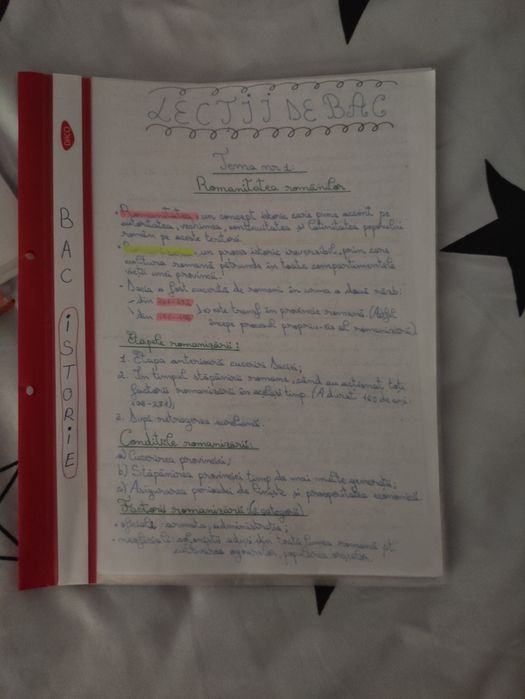 LECȚII DE BAC
Tema nr 1:
Romanitatea românilor
• Romanitatea, un concept istoric care pune accent pe
autoritatea, vechimea, continuitatea și latinitatea poporului
român pe aceste teritorii.
• Romanizarea, un proces istoric ireversibil, prin care
cultura romană pătrunde în toate compartimentele
vieții unei provincii.
- Dacia a fost cucerită de romani în urma a două răzb:
- din
- din
și este transf în provincie romană. (Astfel
începe procesul propriu-zis al romanizării)
Etapele romanizării:
1. Etapa anterioară cuceririi Daciei;
2. În timpul stăpânirii romane, când au acționat toți
factorii romanizării în același timp. (A durat 165 de ani:
106-271);
3. După retragerea aureliană.
Condițiile romanizării:
a) Cucerirea provinciei;
b) Stăpânirea provinciei timp de mai multe generații;
c) Asigurarea perioadei de liniște și prosperitate economică.
Factorii romanizării (2 categorii)
• oficiali: armata, administrația;
• neoficiali: coloniștii aduși din toată lumea romană pt
cultivarea ogoarelor, popularea orașelor.
DACO
BAC iSTORiE